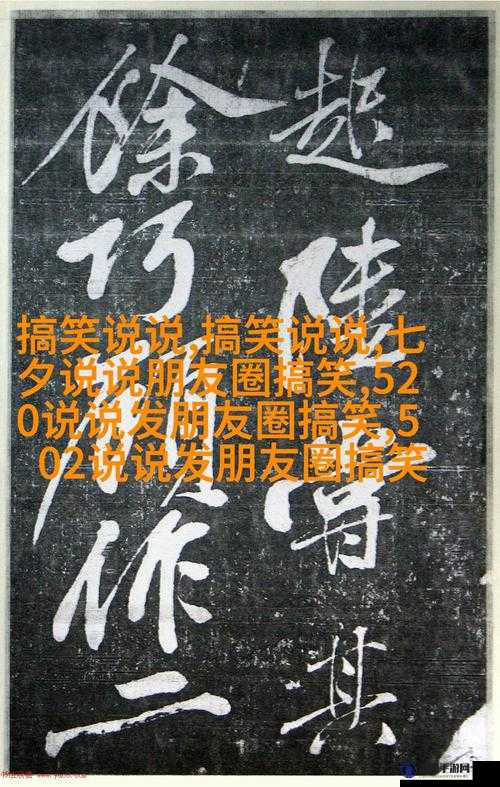 陸其
餘巧顧作二
搞笑说说,搞笑说说,七
夕说说朋友圈搞笑,52
0说说发朋友圈搞笑,5
02说说发朋友圈搞笑
手游网